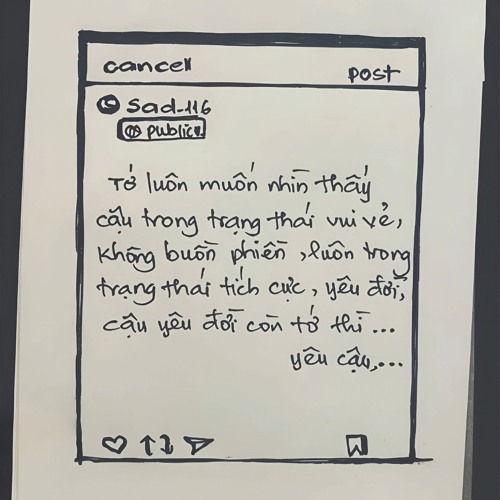 cancel
post
sad_116
public
Tớ luôn muốn nhìn thấy
cậu trong trạng thái vui vẻ,
không buồn phiền, luôn trong
trạng thái tích cực, yêu đời,
cậu yêu đời còn tớ thì...
yêu cậu,...